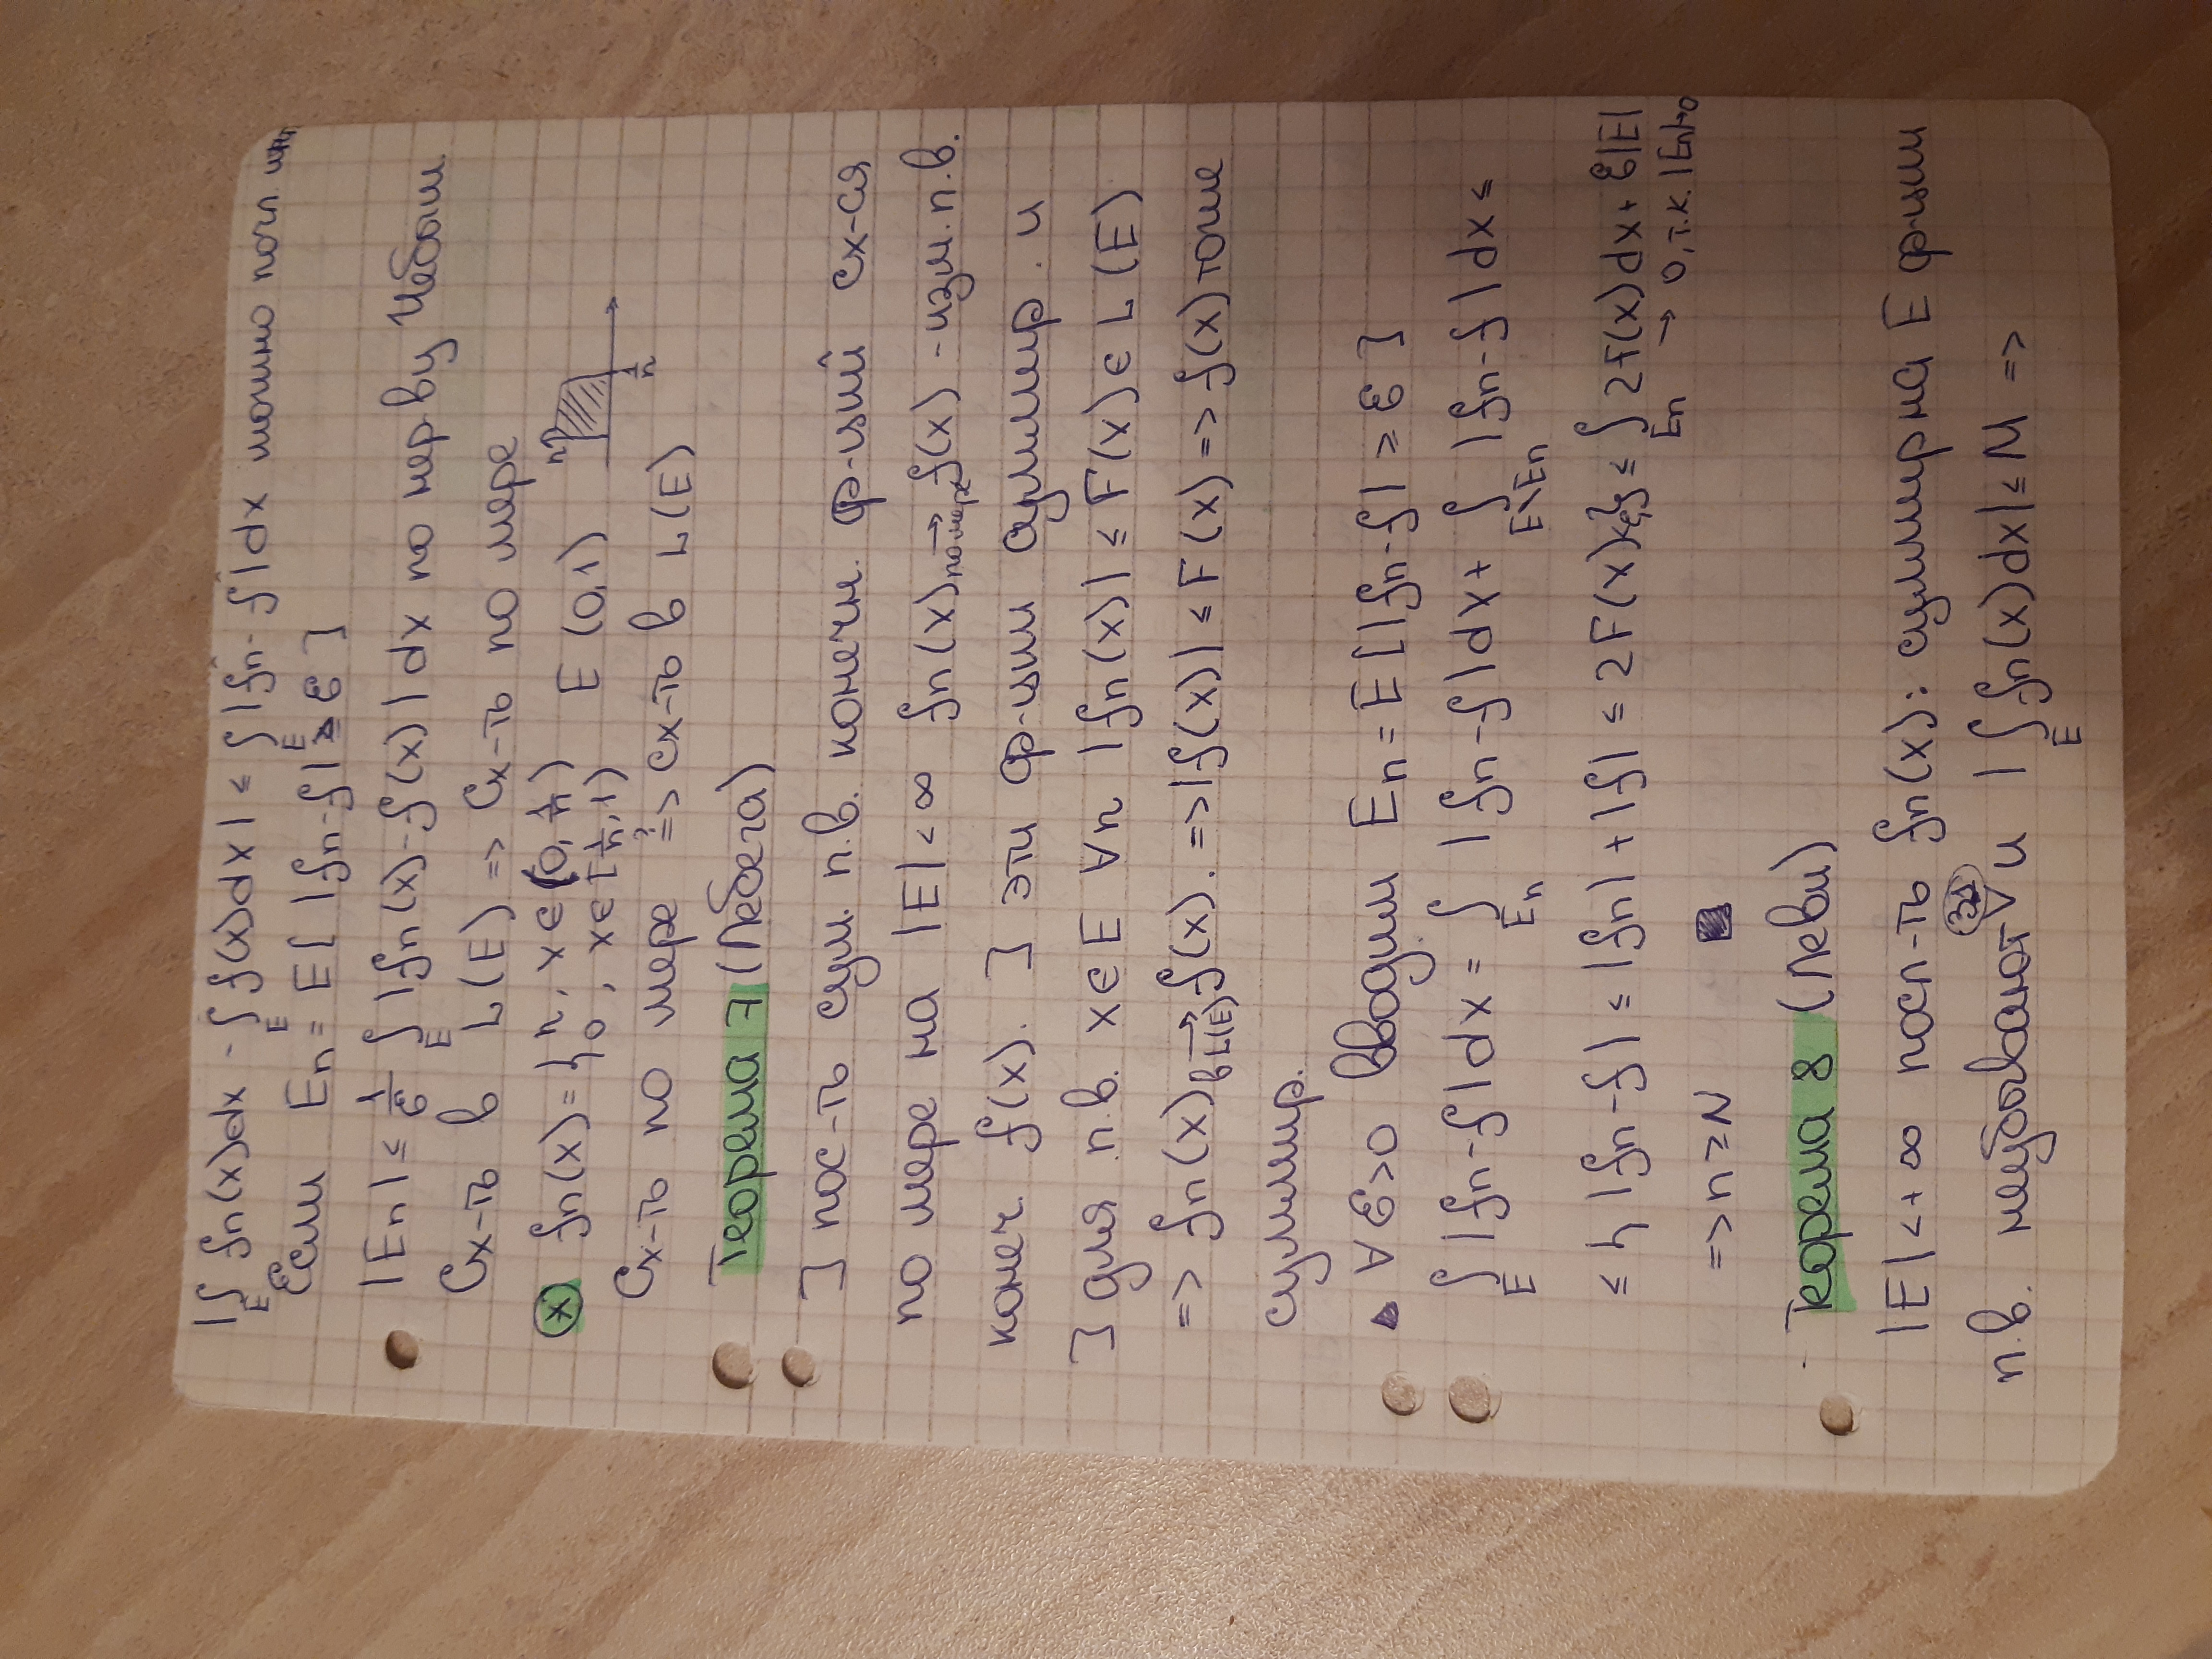 |∫_E fn(x)dx - ∫_E f(x)dx| ≤ ∫_E |fn - f|dx можно почл.
Если En = E[|fn-f| ≥ ε]
|En| ≤ 1/ε ∫_E |fn(x)-f(x)|dx по нер ву Чебыш.
Сх-ть в L(E) => Сх-ть по мере
(*) fn(x) = { n, x∈(0, 1/n) E (0,1)
0, x∈[1/n, 1)
n 1/n
Сх-ть по мере ?=> сх-ть в L(E)
Теорема 7 (Лебега)
] пос-ть сум. п.в. конечн. ф-ций сх-ся
по мере на |E|<∞ fn(x) →по мере f(x) - изм. п.в.
конеч f(x). ] эти ф-ции суммир. и
] для п.в. x∈E ∀n |fn(x)| ≤ F(x) ∈ L(E)
=> fn(x) →в L(E) f(x). => |f(x)| ≤ F(x) => f(x) тоже
суммир.
▸ ∀ε>0 Вводим En = E[|fn-f| ≥ ε]
∫_E |fn-f|dx = ∫_En |fn-f|dx + ∫_E\En |fn-f|dx ≤
≤ { |fn-f| ≤ |fn|+|f| ≤ 2F(x) } ≤ ∫_En 2F(x)dx + ε|E|
→ 0, т.к. |En|→0
=> n≥N ■
Теорема 8 (Леви)
|E|<+∞ посл-ть fn(x): суммир на E ф-ции
п.в. неубывают и |∫_E fn(x)dx| ≤ M =>